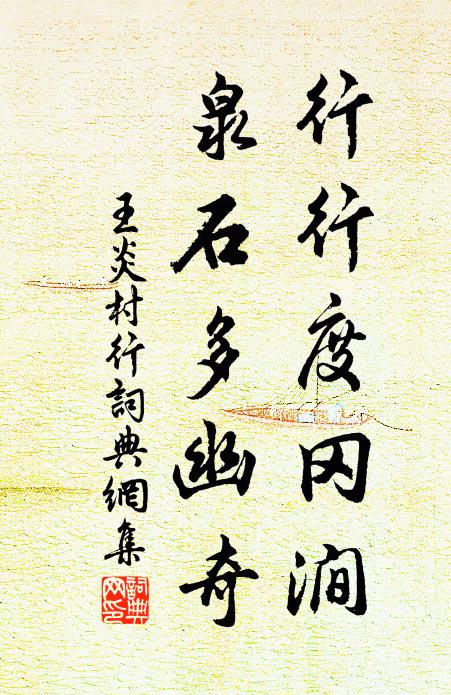 行行度冈澗
泉石多幽奇
王炎村行詞典網集
詞典網印